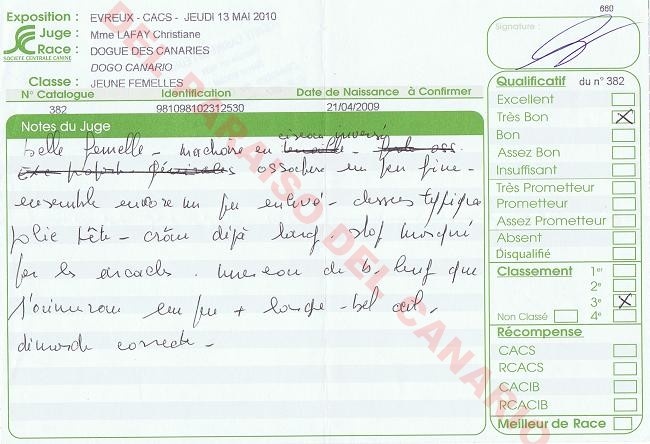 660
Exposition : EVREUX - CACS - JEUDI 13 MAI 2010
Signature :
Juge : Mme LAFAY Christiane
Race : DOGUE DES CANARIES
SOCIETE CENTRALE CANINE
DOGO CANARIO
Classe : JEUNE FEMELLES
N° Catalogue Identification Date de Naissance à Confirmer
382 981098102312530 21/04/2009
Notes du Juge
ciseaux inversé
belle femelle - machoire en tenaille -
ossature un peu fine -
ensemble encore un peu enlevé - dessus typique
jolie tête - crâne déjà large. stop marqué
par les arcades. museau de b. long que
j'aimerais un peu + large - bel œil -
démarche correcte -
Qualificatif du n° 382
Excellent
Très Bon X
Bon
Assez Bon
Insuffisant
Très Prometteur
Prometteur
Assez Prometteur
Absent
Disqualifié
Classement 1er
2e
3e X
Non Classé 4e
Récompense
CACS
RCACS
CACIB
RCACIB
Meilleur de Race
DEL PARAISO DEL CANARIO